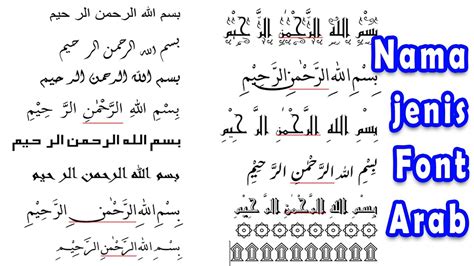 بسم الله الرحمن الر حيم
بسم الله الرحمن الر حيم
بسم الله الرحمن الر حيم
بِسْمِ اللهِ الرَّحْمٰنِ الرَّ حِيْمِ
بسم الله الرحمن الر حيم
بسم الله الرحمن الر حيم
بِسْمِ اللهِ الرَّحْمٰنِ الرَّحِيْمِ
بِسْمِ اللهِ الرَّحْمٰنِ الرَّحِيْمِ
بِسْمِ اللهِ الرَّحْمٰنِ الرَّ حِيْمِ
بِسْمِ اللهِ الرَّحْمٰنِ الرَّحِيْمِ
بِسْمِ اللهِ الرَّحْمٰنِ الرَّ حِيْمِ
بِسْمِ اللهِ الرَّحْمٰنِ الرَّ حِيْمِ
بِسْمِ اللهِ الرَّحْمٰنِ الرَّحِيْمِ
Nama
jenis
Font
Arab